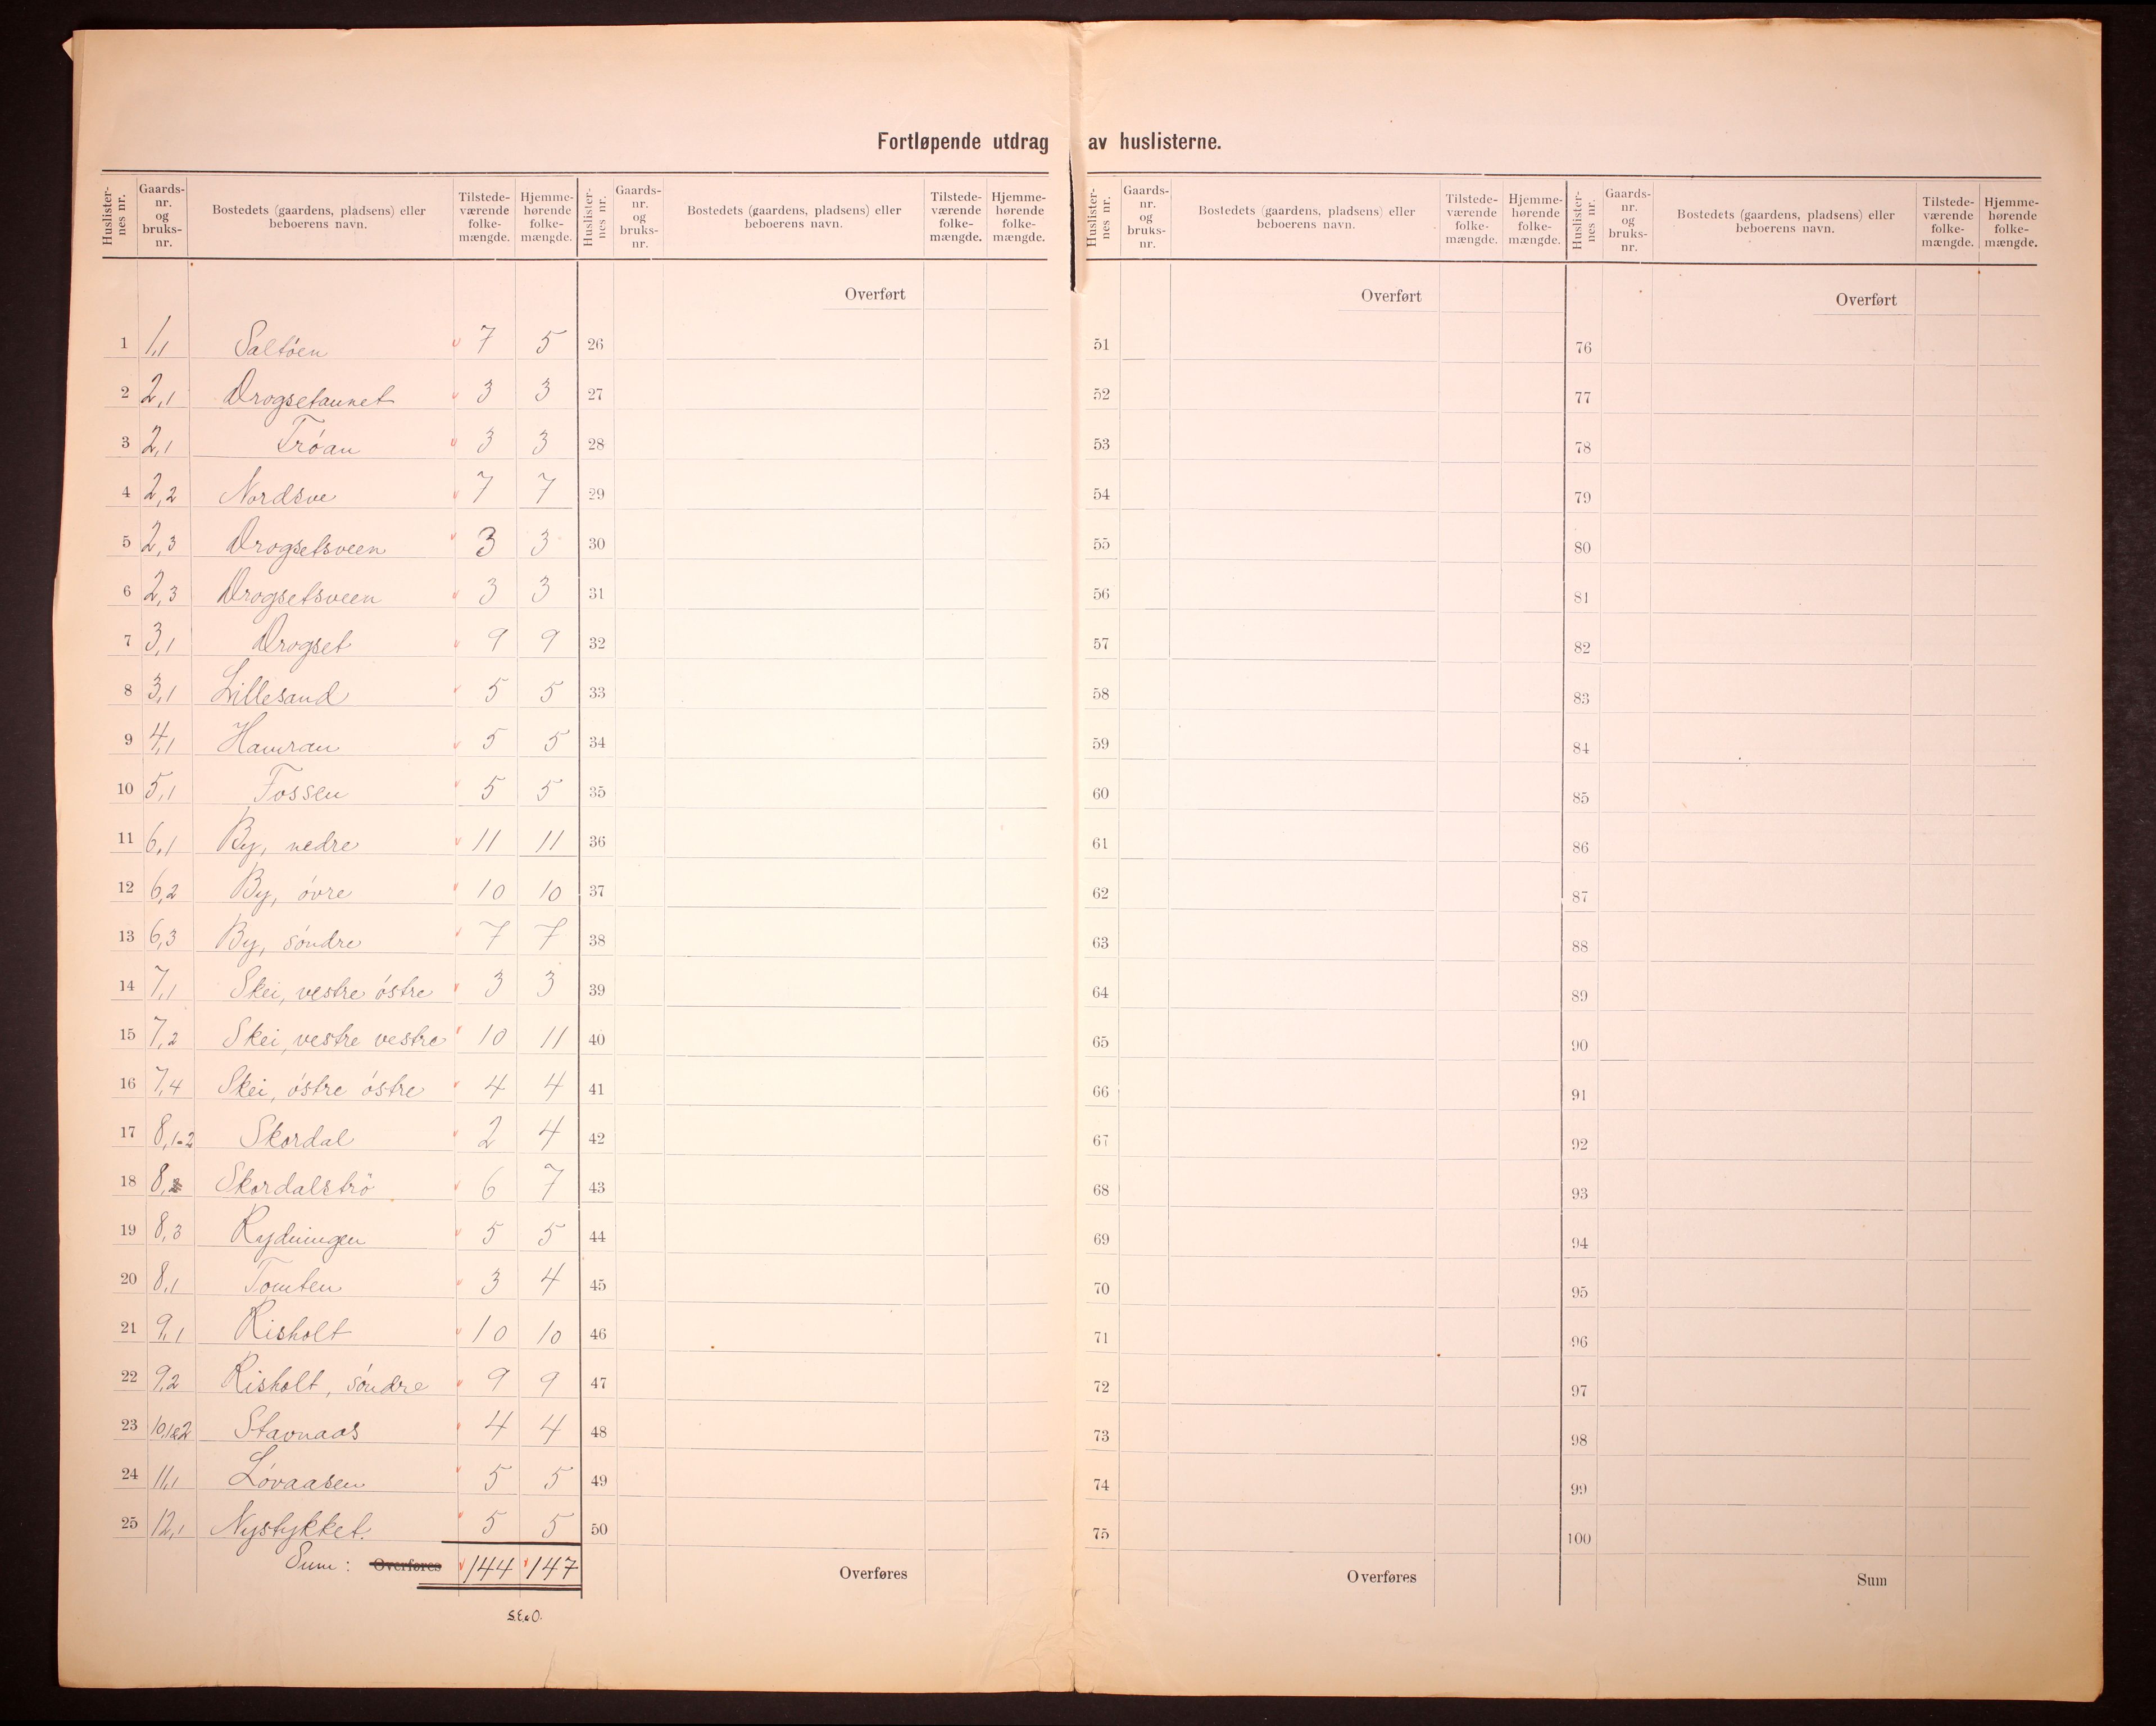 Fortløpende utdrag av huslisterne.
Huslister-nes nr. Gaards-nr. og bruks-nr. Bostedets (gaardens, pladsens) eller beboerens navn. Tilstede-værende folke-mængde. Hjemme-hørende folke-mængde. Huslister-nes nr. Gaards-nr. og bruks-nr. Bostedets (gaardens, pladsens) eller beboerens navn. Tilstede-værende folke-mængde. Hjemme-hørende folke-mængde. Huslister-nes nr. Gaards-nr. og bruks-nr. Bostedets (gaardens, pladsens) eller beboerens navn. Tilstede-værende folke-mængde. Hjemme-hørende folke-mængde. Huslister-nes nr. Gaards-nr. og bruks-nr. Bostedets (gaardens, pladsens) eller beboerens navn. Tilstede-værende folke-mængde. Hjemme-hørende folke-mængde.
Overført Overført Overført
1 1,1 Saltöen 7 5 26 51 76
2 2,1 Drogsetaunet 3 3 27 52 77
3 2,1 Tröan 3 3 28 53 78
4 2,2 Nordsve 7 7 29 54 79
5 2,3 Drogsetsveen 3 3 30 55 80
6 2,3 Drogsetsveen 3 3 31 56 81
7 3,1 Drogset 9 9 32 57 82
8 3,1 Lillesand 5 5 33 58 83
9 4,1 Hamran 5 5 34 59 84
10 5,1 Fossen 5 5 35 60 85
11 6,1 By, nedre 11 11 36 61 86
12 6,2 By, övre 10 10 37 62 87
13 6,3 By, söndre 7 7 38 63 88
14 7,1 Skei, vestre östre 3 3 39 64 89
15 7,2 Skei, vestre vestre 10 11 40 65 90
16 7,4 Skei, östre östre 4 4 41 66 91
17 8,1-2 Skordal 2 4 42 67 92
18 8, Skordalströ 6 7 43 68 93
19 8,3 Rydningen 5 5 44 69 94
20 8,1 Tomten 3 4 45 70 95
21 9,1 Risholt 10 10 46 71 96
22 9,2 Risholt, söndre 9 9 47 72 97
23 10,1&2 Stavnaas 4 4 48 73 98
24 11,1 Lövaasen 5 5 49 74 99
25 12,1 Nystykket. 5 5 50 75 100
Sum: Overføres 144 147 Overføres Overføres Sum
S.E.&O.